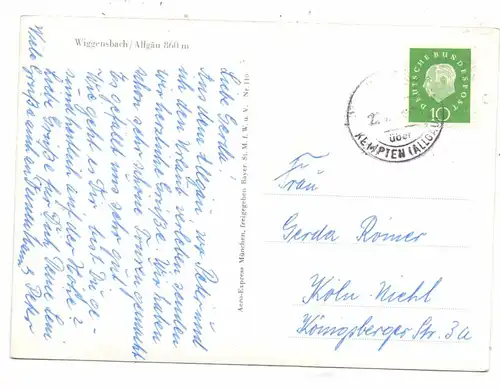 Wiggensbach/Allgäu 860 m
Liebe Gerda!
Aus dem Allgäu, wo Peter und
ich den Urlaub verleben senden
wir herzliche Grüße. Wir haben
schon sehr schöne Touren gemacht
Es gefällt uns sehr gut.
Wie geht es Dir, bist Du
auf der
Liebe Grüße für Dich, Deine
Viele Grüße Peter
Aero-Express München, freigegeben Bayer. St. M. f. W. u. V. Nr.
DEUTSCHE BUNDESPOST
10
über
KEMPTEN (ALLGÄU)
Frau
Gerda Römer
Köln-Niehl
Königsberger Str. 3a